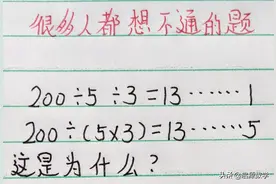 很多人都想不通的题
200÷5÷3=13……1
200÷(5×3)=13……5
这是为什么?
头条@胜爵数学